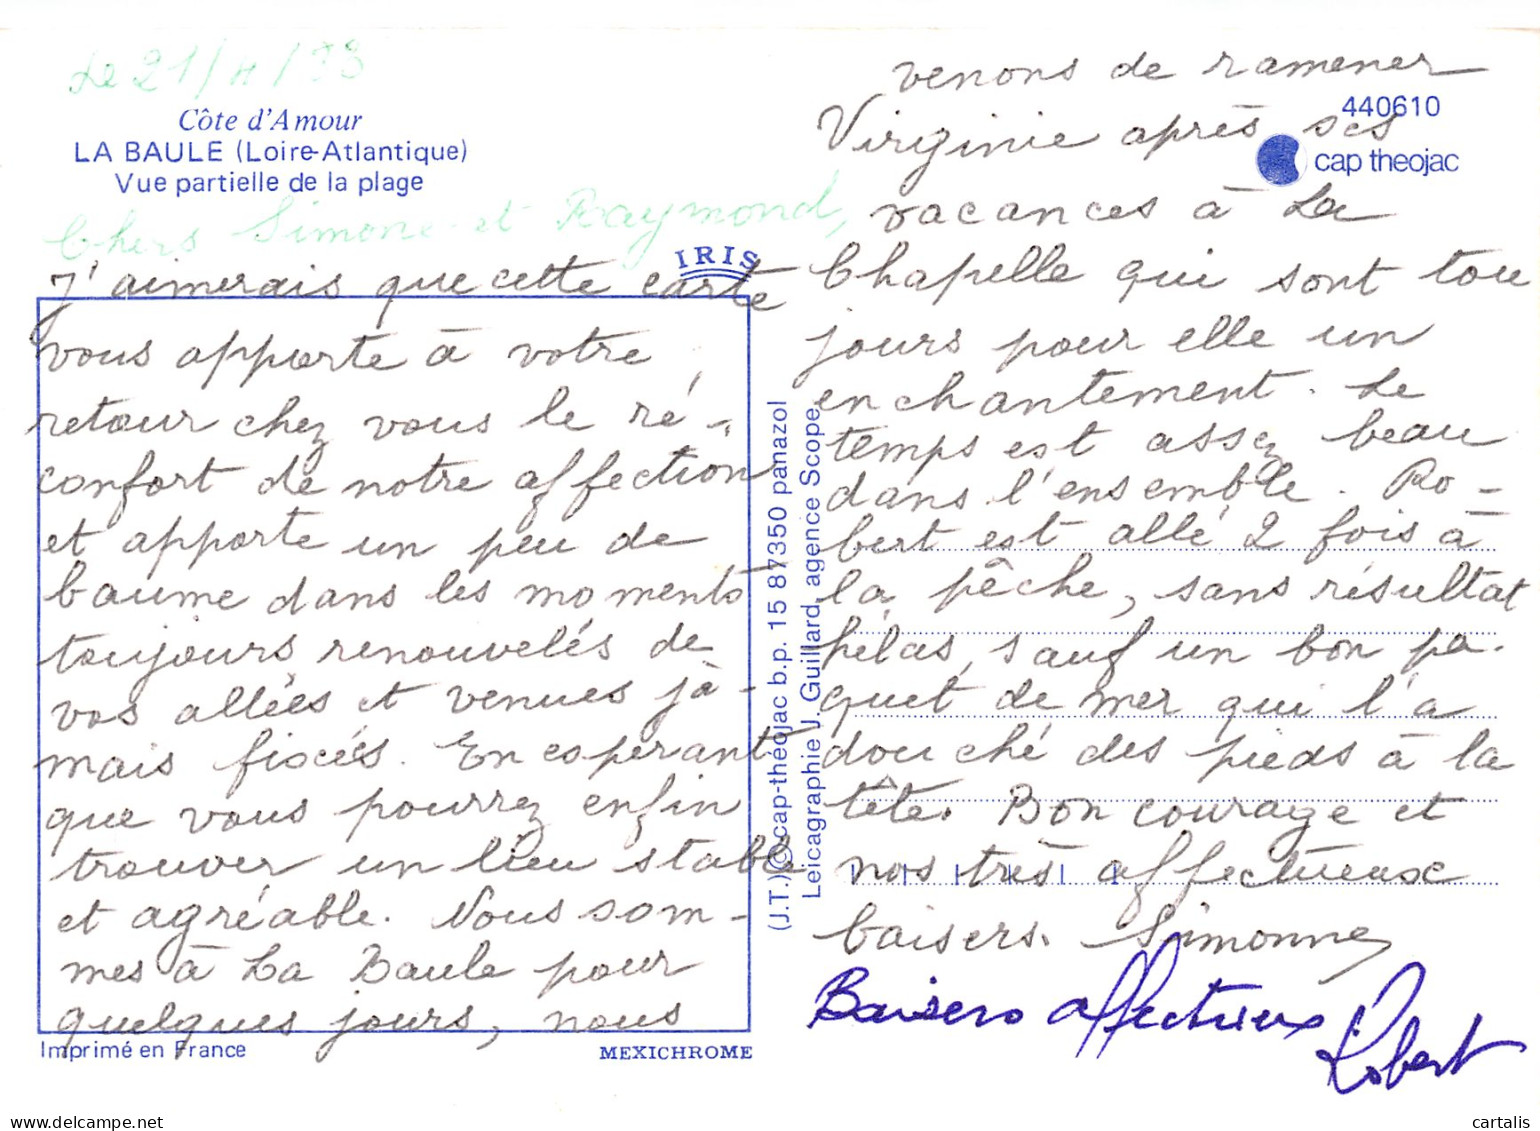 Le 21/4/93
Côte d'Amour
LA BAULE (Loire-Atlantique)
Vue partielle de la plage
Chers Simone et Raymond,
IRIS
J'aimerais que cette carte
vous apporte à votre
retour chez vous le ré-
confort de notre affection
et apporte un peu de
baume dans les moments
toujours renouvelés de
vos allées et venues ja-
mais fixées. En espérant
que vous pourrez enfin
trouver un lieu stable
et agréable. Nous som-
mes à La Baule pour
quelques jours, nous
Imprimé en France
MEXICHROME
(J.T.) © cap-théojac b.p. 15 87350 panazol
Leicagraphie J. Guillard, agence Scope
440610
cap theojac
venons de ramener
Virginie après ses
vacances à La
Chapelle qui sont tou
jours pour elle un
enchantement. Le
temps est assez beau
dans l'ensemble. Ro-
bert est allé 2 fois à
la pêche, sans résultat
hélas, sauf un bon pa-
quet de mer qui l'a
douché des pieds à la
tête. Bon courage et
nos très affectueux
baisers. Simonne
Baisers affectueux
Robert
cartalis
delcampe.net